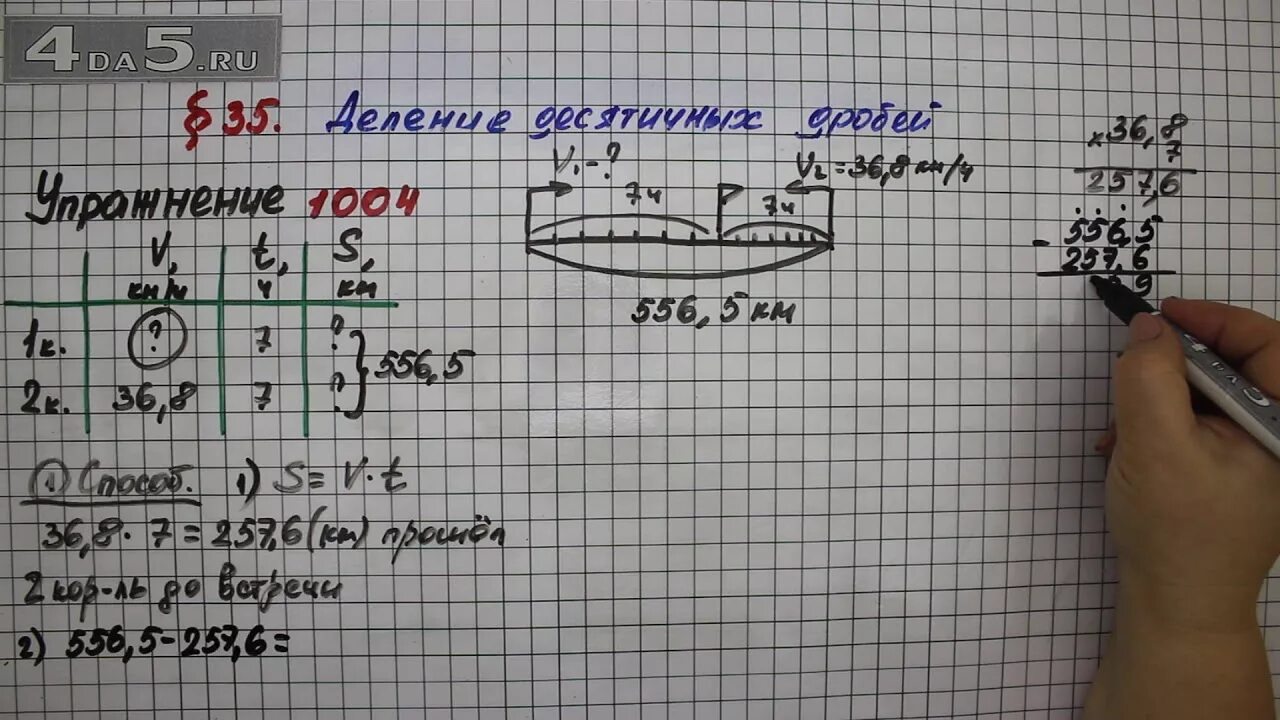 4DA5.RU
§ 35. Деление десятичных дробей
Упражнение 1004
V, км/ч t, ч S, км
1к. ? 7 ?
2к. 36,8 7 ?
556,5
V₁ - ?
V₂ = 36,8 км/ч
7ч
7ч
556,5 км
× 36,8
7
257,6
- 556,5
257,6
9
① Способ. 1) S = V · t
36,8 · 7 = 257,6 (км) прошёл
2 кор-ль до встречи
2) 556,5 - 257,6 =